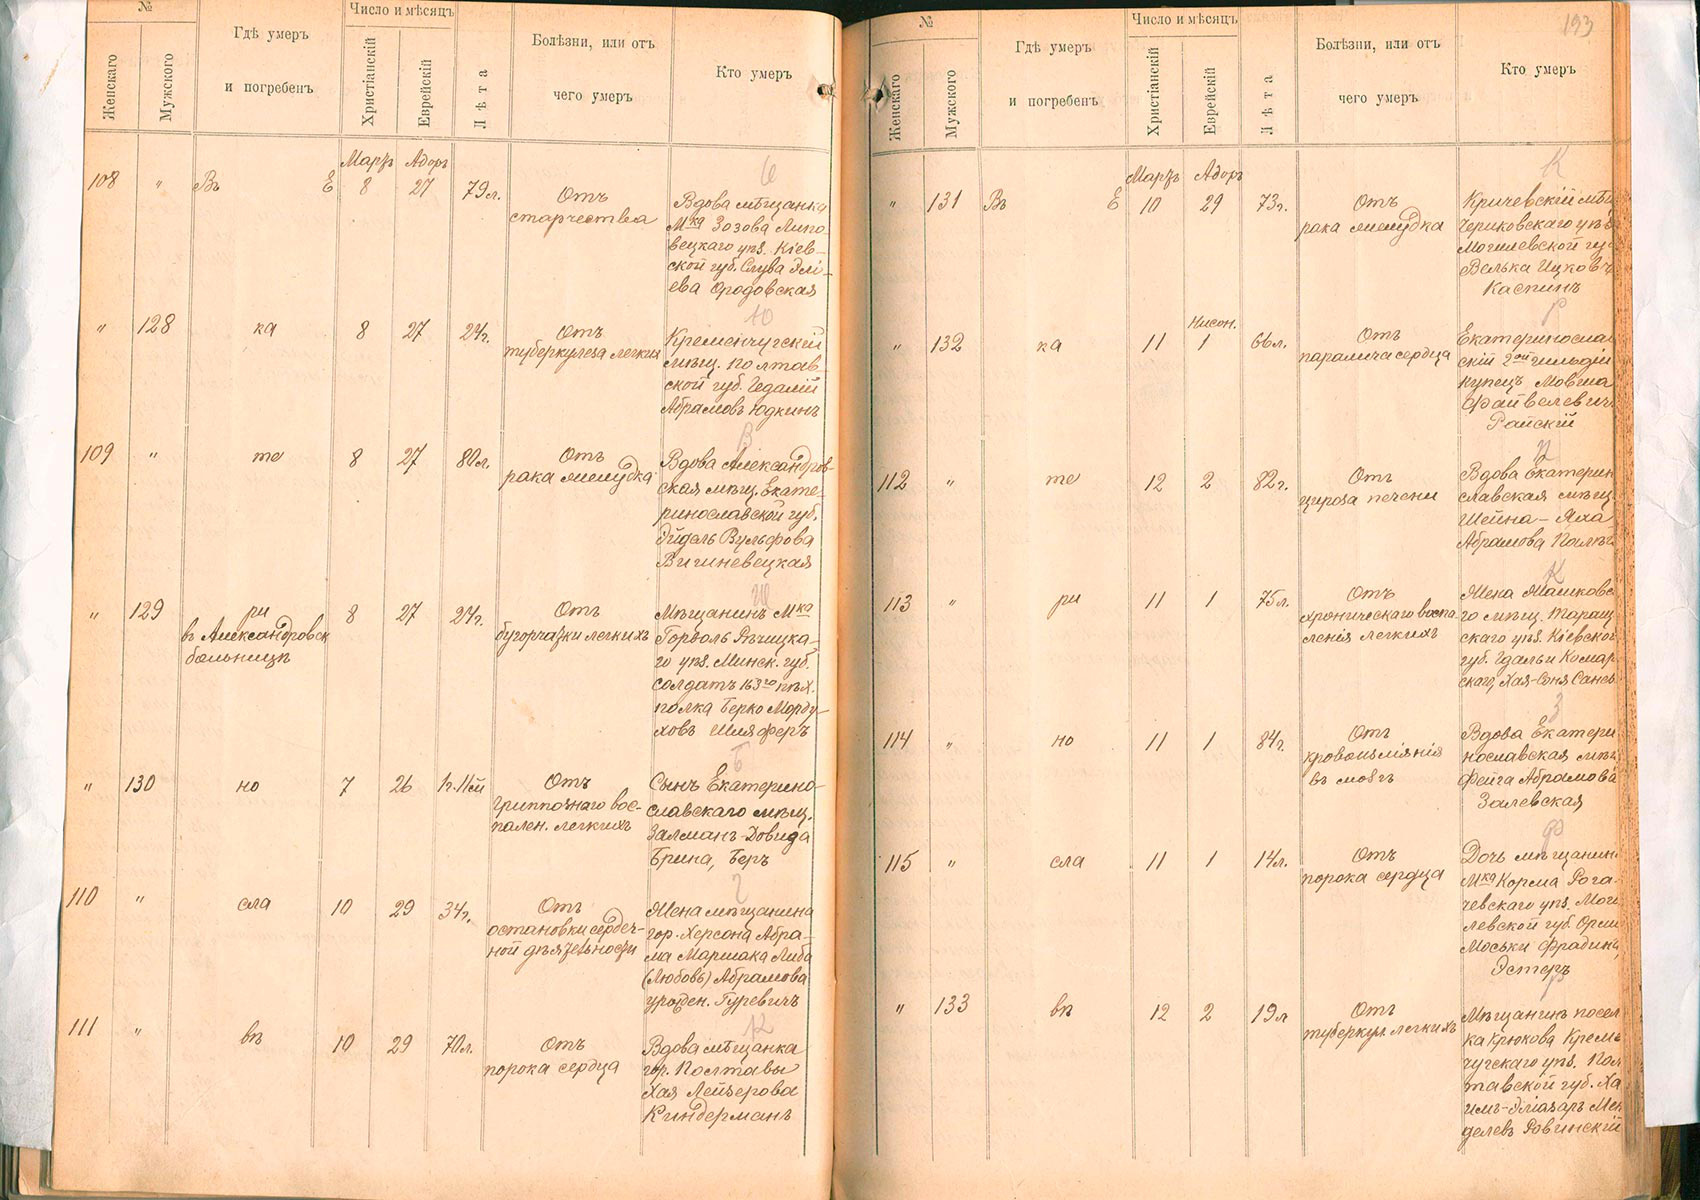 №
Женскаго
Мужского
Гдѣ умеръ
и погребенъ
Число и мѣсяцъ
Христіанскій
Еврейскій
Лѣта
Болѣзни, или отъ
чего умеръ
Кто умеръ
Мартъ Адоръ
108 " Въ Е 8 27 79 л.
Отъ
старчества
Вдова мѣщанка
М-ка Зозова Липо-
вецкаго уѣз. Кіев-
ской губ. Слува Элі-
ева Ородовская
Ю
" 128 ка 8 27 24 г.
Отъ
туберкулеза легких
Кременчугскій
мѣщ. Полтав-
ской губ. Гедалій
Абрамовъ Юдкинъ
В
109 " те 8 27 80 л.
Отъ
рака желудка
Вдова Александров-
ская мѣщ. Екате-
ринославской губ.
Эйдель Вульфова
Вишневецкая
Ш
" 129 ри 8 27 24 г.
въ Александровск
больницѣ
Отъ
бугорчатки легкихъ
Мѣщанинъ М-ка
Горволь Рѣчицка-
го уѣз. Минск. губ.
солдатъ 163го пѣх.
полка Берко Морду-
ховъ Шляферъ
Б
" 130 но 7 26 1 г. 11 м
Отъ
гриппочнаго вос-
пален. легкихъ
Сынъ Екатерино-
славскаго мѣщ.
Залманъ-Довида
Брина, Беръ
Г
110 " сла 10 29 34 г.
Отъ
остановки сердеч-
ной дѣятельности
Жена мѣщанина
гор. Херсона Абра-
ма Маршака Либа
(Любовь) Абрамова
урожден. Гуревичъ
К
111 " вѣ 10 29 70 л.
Отъ
порока сердца
Вдова мѣщанка
гор. Полтавы
Хая Лейзерова
Киндерманъ
193
№
Женскаго
Мужского
Гдѣ умеръ
и погребенъ
Число и мѣсяцъ
Христіанскій
Еврейскій
Лѣта
Болѣзни, или отъ
чего умеръ
Кто умеръ
Мартъ Адоръ
К
" 131 Въ Е 10 29 73 г.
Отъ
рака желудка
Кричевскій мѣщ
Чериковскаго уѣз
Могилевской губ
Велька Ицков
Каспинъ
Р
Нисон.
" 132 ка 11 1 66 л.
Отъ
паралича сердца
Екатеринослав
скій 2ой гильдіи
купецъ Мовша
Файвелевич
Райскій
П
112 " те 12 2 82 г.
Отъ
цироза печени
Вдова Екатерин
славская мѣщ
Шейна-Яха
Абрамова
К
113 " ри 11 1 75 л.
Отъ
хроническаго воспа-
ленія легкихъ
Жена Машковс
го мѣщ. Таращ
скаго уѣз. Кіевской
губ. Гдальи Комар
скаго, Хая-Соня
З
114 " но 11 1 84 г.
Отъ
кровоизліянія
въ мозгъ
Вдова Екатери
нославская мѣщ
Фейга Абрамова
Залевская
Ф
115 " сла 11 1 14 л.
Отъ
порока сердца
Дочь мѣщанин
М-ка Корма Рога-
чевскаго уѣз. Моги
левской губ.
Моськи Фрадина,
Эстеръ
Р
" 133 вѣ 12 2 19 л
Отъ
туберкул. легкихъ
Мѣщанинъ посел
ка Крюкова Кремен
чугскаго уѣз. Пол
тавской губ. Ха
имъ-Эліазаръ Мен
делевъ Ровинскій